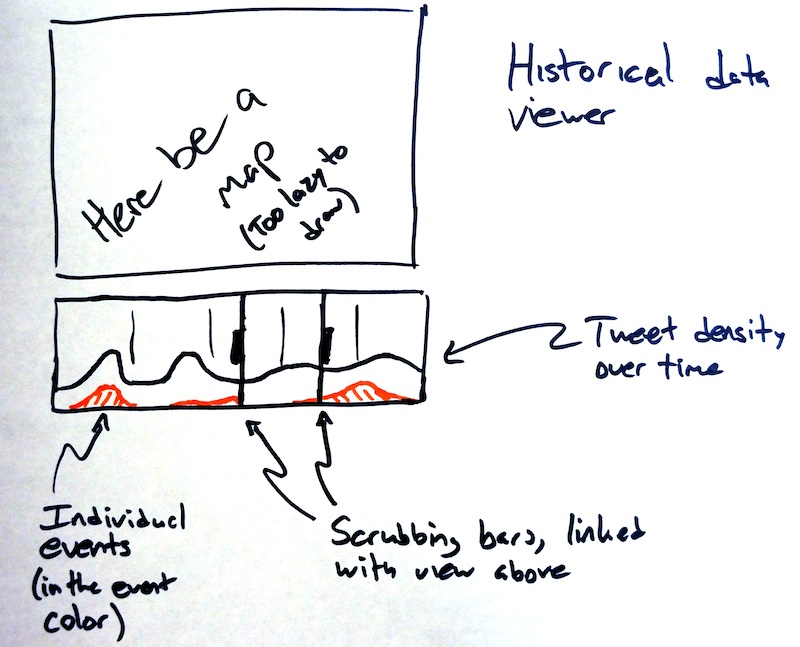 Historical data
viewer
Here be a
map
(Too lazy to
draw)
Tweet density
over time
Individual
events
(in the event
color)
Scrubbing bars, linked
with view above